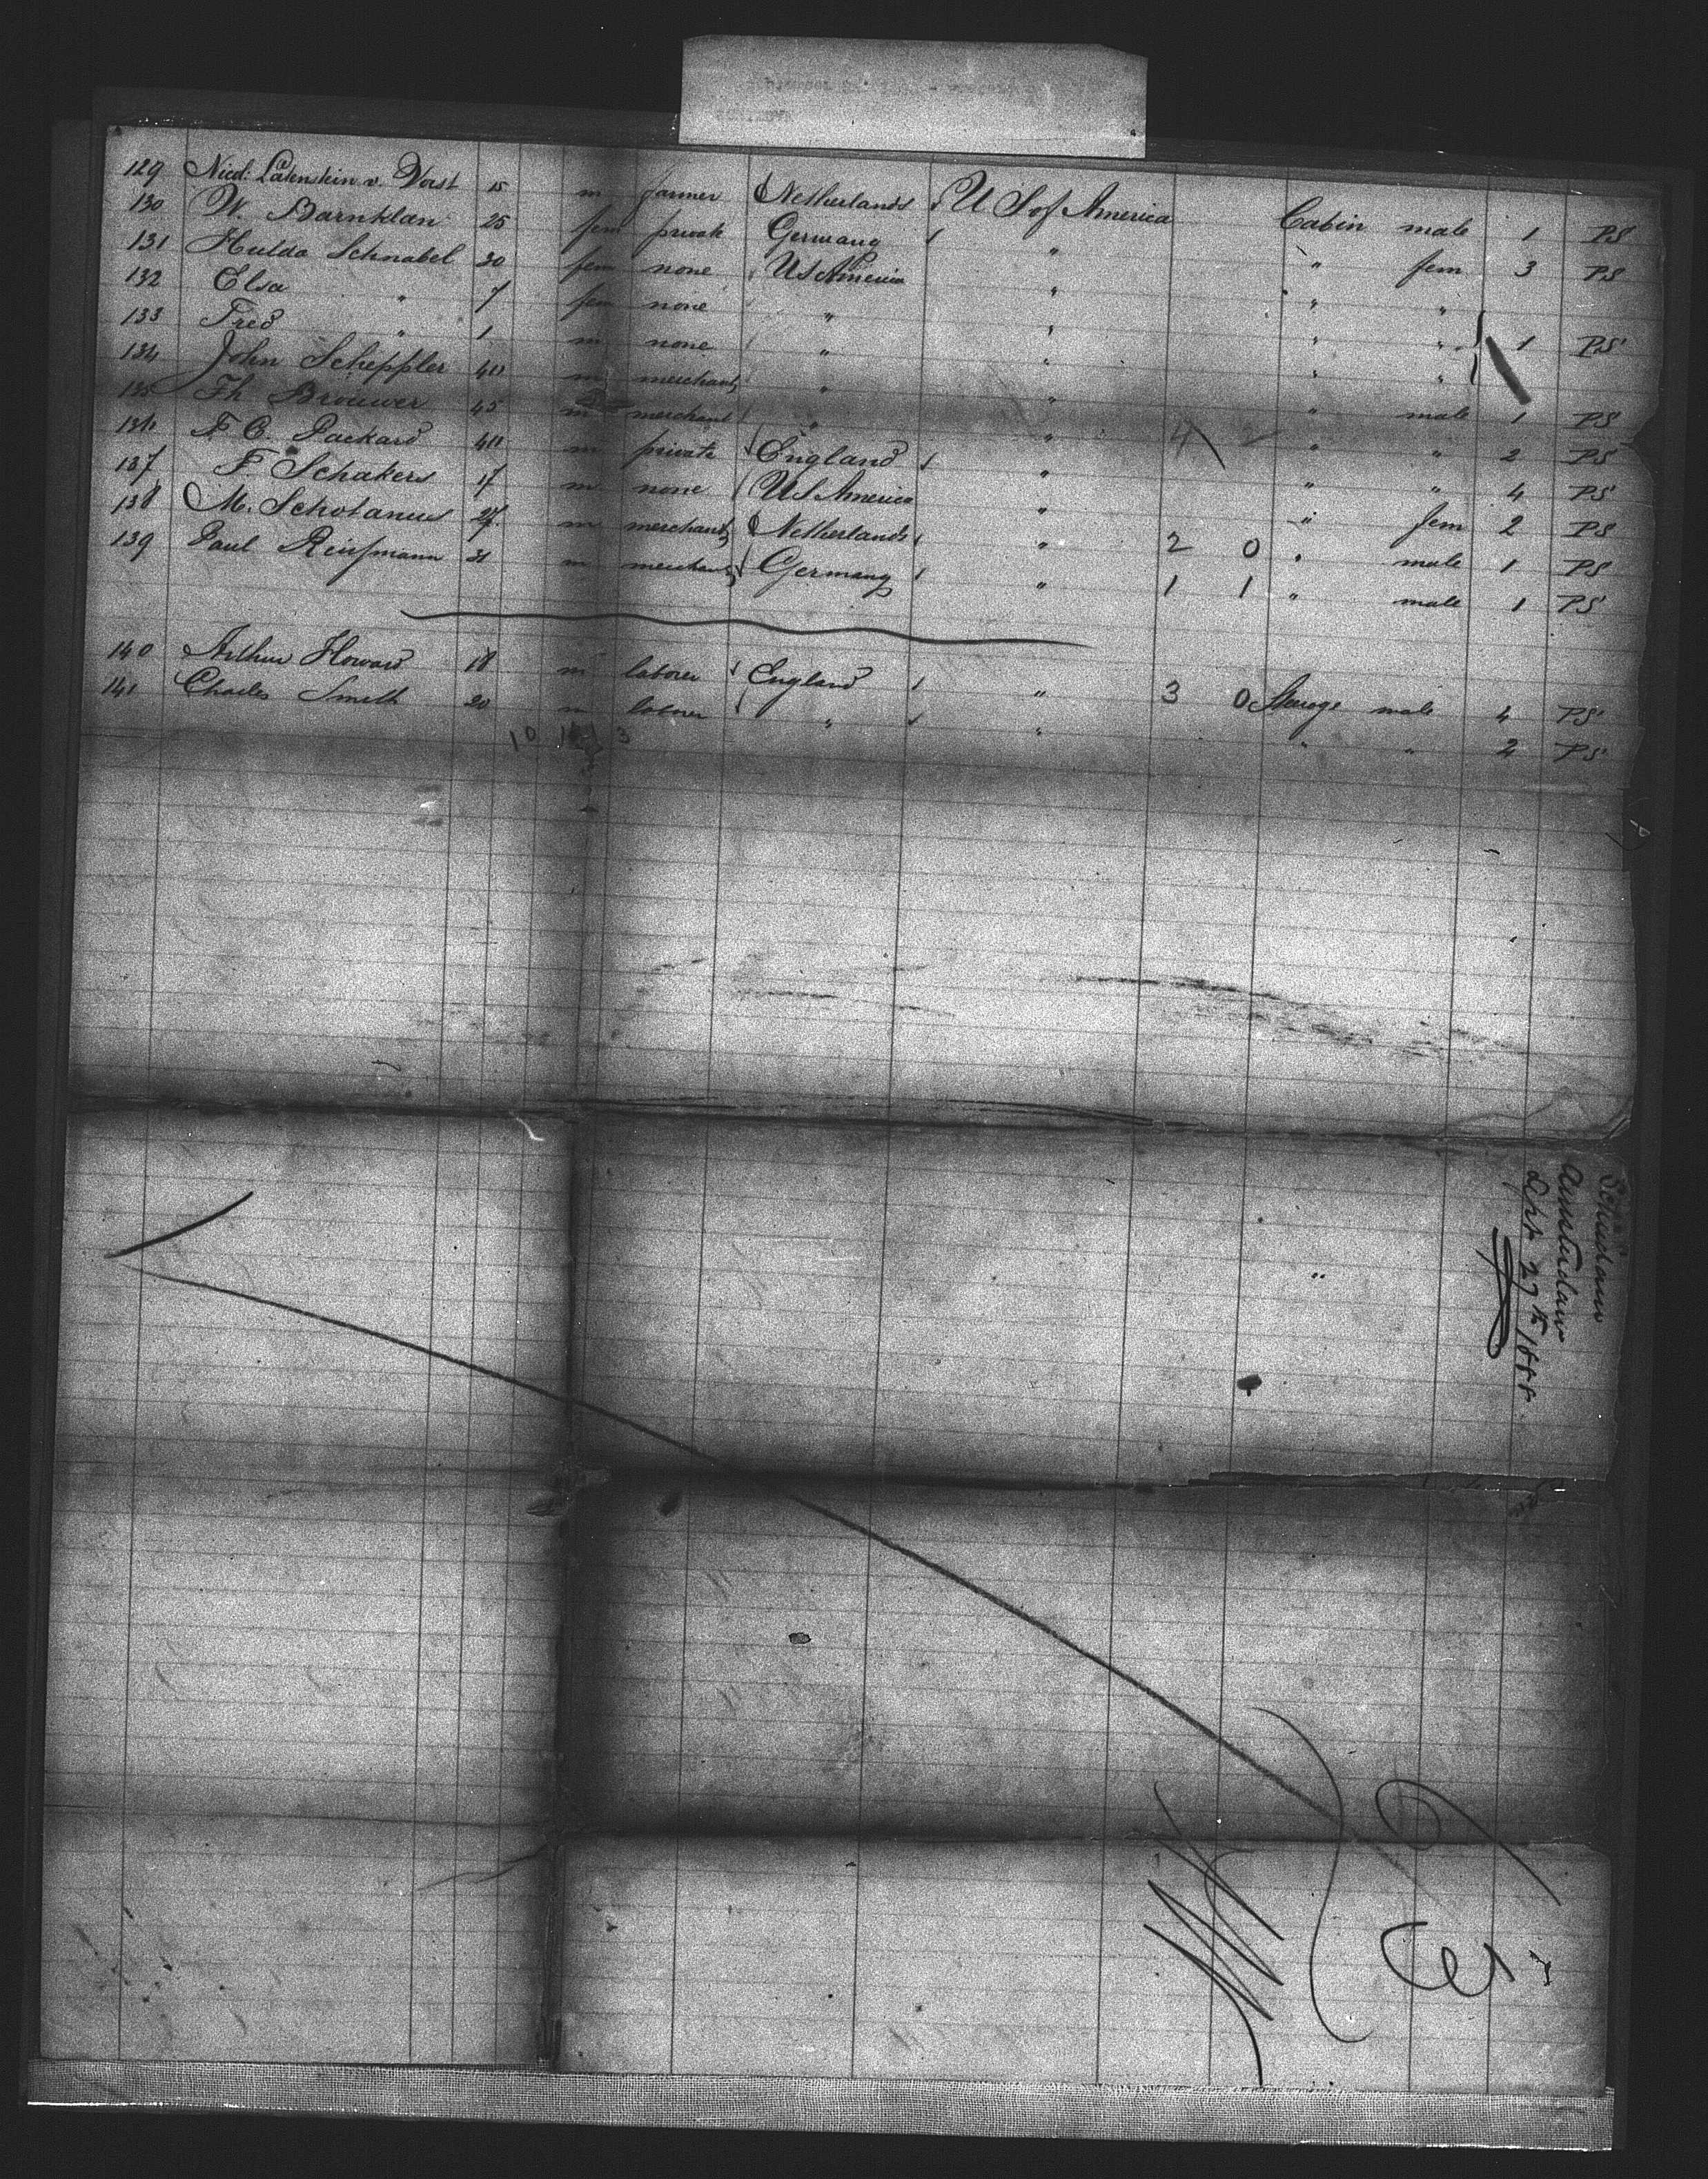 129 Nicol: Latenstein v. Vorst 15 m farmer Netherlands U S of America Cabin male 1 PS
130 W. Barnklan 25 fem private Germany " " fem 3 PS
131 Hulda Schnabel 30 fem none US America " " "
132 Elsa " 7 fem none " " " " 1 PS
133 Fred " 1 m none " " " "
134 John Scheppler 40 m merchant " " " male 1 PS
135 Th Brouwer 45 m merchant " " " " 2 PS
136 F C. Packard 40 m private England " " " 4 PS
137 F Schakers 17 m none US America " " fem 2 PS
138 M. Schotanus 27 m merchant Netherlands " 2 0 " male 1 PS
139 Paul Reissmann 31 m merchant Germany " 1 1 " male 1 PS
140 Arthur Howard 18 m laborer England " 3 0 Steerage male 4 PS
141 Charles Smith 20 m laborer " " " " 2 PS
Schiedam
Amsterdam
Sept 27th 1888